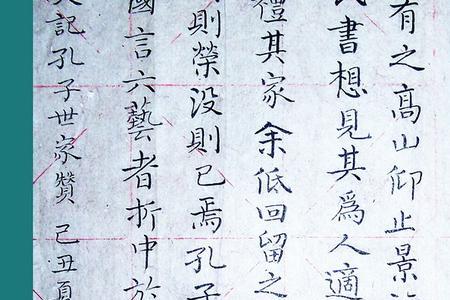 有之高山仰止景
氏書想見其爲人適
禮其家余低回留之
則榮没則已焉孔子
國言六藝者折中於
史記孔子世家贊 己丑夏